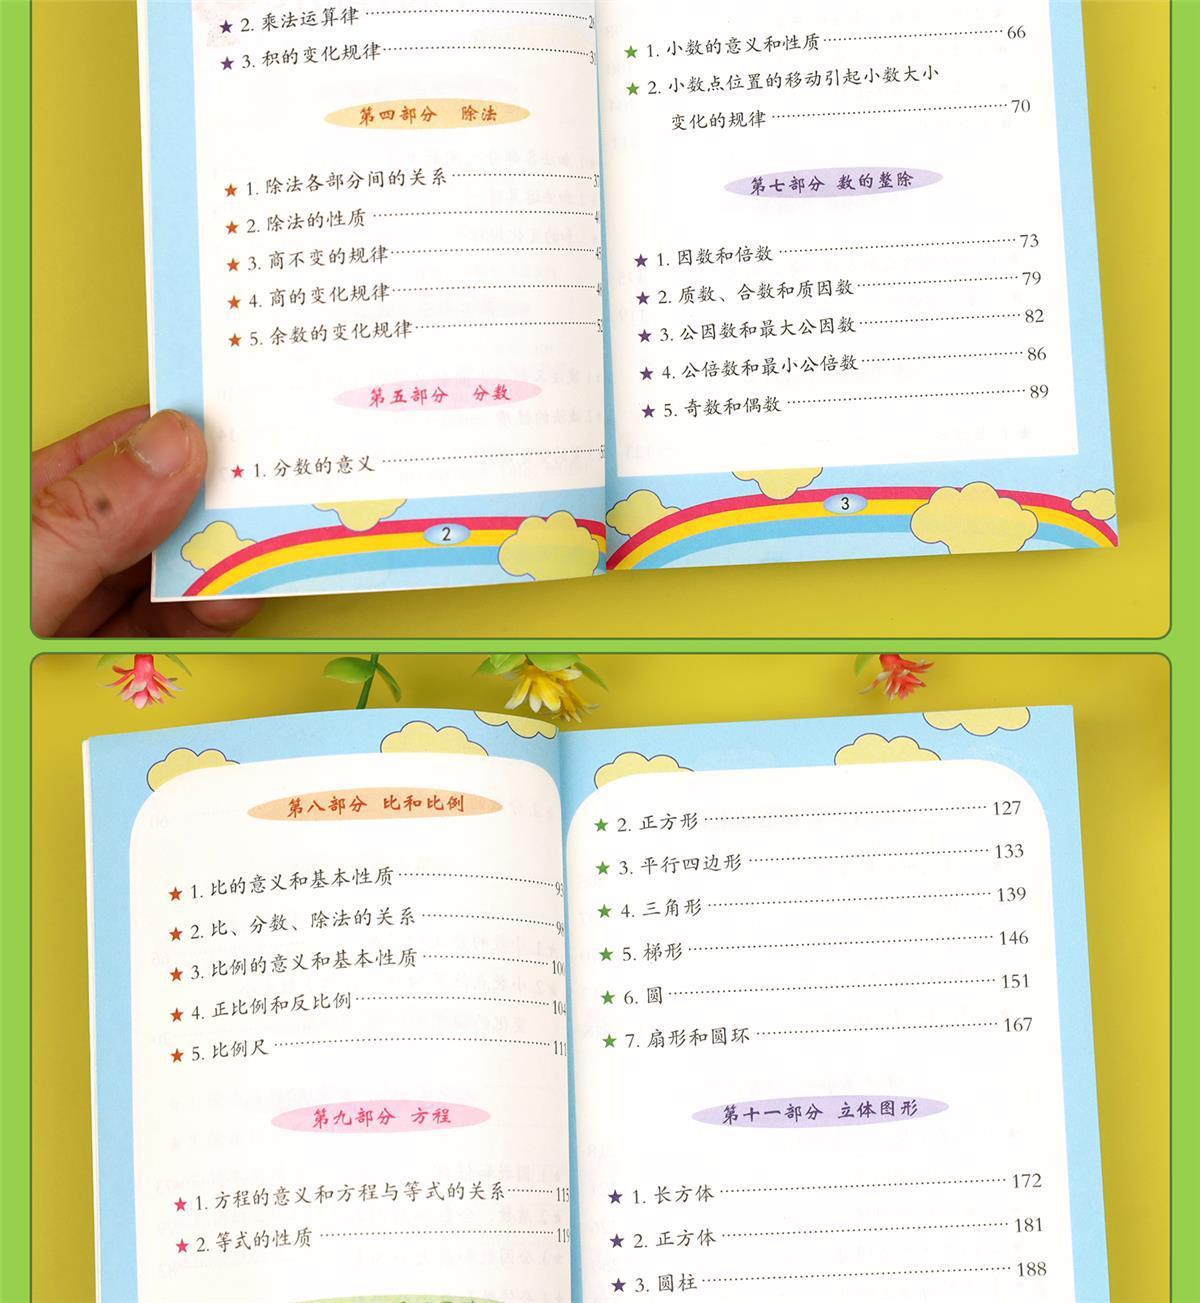 ★ 2. 乘法运算律
★ 3. 积的变化规律
第四部分 除法
★ 1. 除法各部分间的关系
★ 2. 除法的性质
★ 3. 商不变的规律
★ 4. 商的变化规律
★ 5. 余数的变化规律
第五部分 分数
★ 1. 分数的意义
2
★ 1. 小数的意义和性质 66
★ 2. 小数点位置的移动引起小数大小
变化的规律 70
第七部分 数的整除
★ 1. 因数和倍数 73
★ 2. 质数、合数和质因数 79
★ 3. 公因数和最大公因数 82
★ 4. 公倍数和最小公倍数 86
★ 5. 奇数和偶数 89
3
第八部分 比和比例
★ 1. 比的意义和基本性质 93
★ 2. 比、分数、除法的关系
★ 3. 比例的意义和基本性质 100
★ 4. 正比例和反比例 104
★ 5. 比例尺 111
第九部分 方程
★ 1. 方程的意义和方程与等式的关系 115
★ 2. 等式的性质 119
★ 2. 正方形 127
★ 3. 平行四边形 133
★ 4. 三角形 139
★ 5. 梯形 146
★ 6. 圆 151
★ 7. 扇形和圆环 167
第十一部分 立体图形
★ 1. 长方体 172
★ 2. 正方体 181
★ 3. 圆柱 188